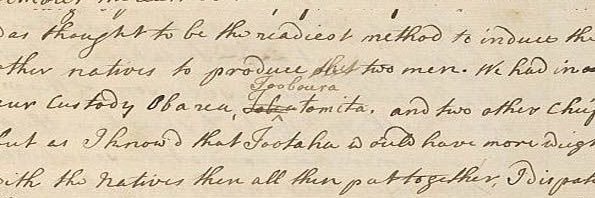 as thought to be the readiest method to induce the
ther natives to produce two men. We had in o
Tooboura
ur Custody Obarea, tomita, and two other Chief
but as I know'd that Tootaha would have more weigh
with the Natives then all then put together, I dispat